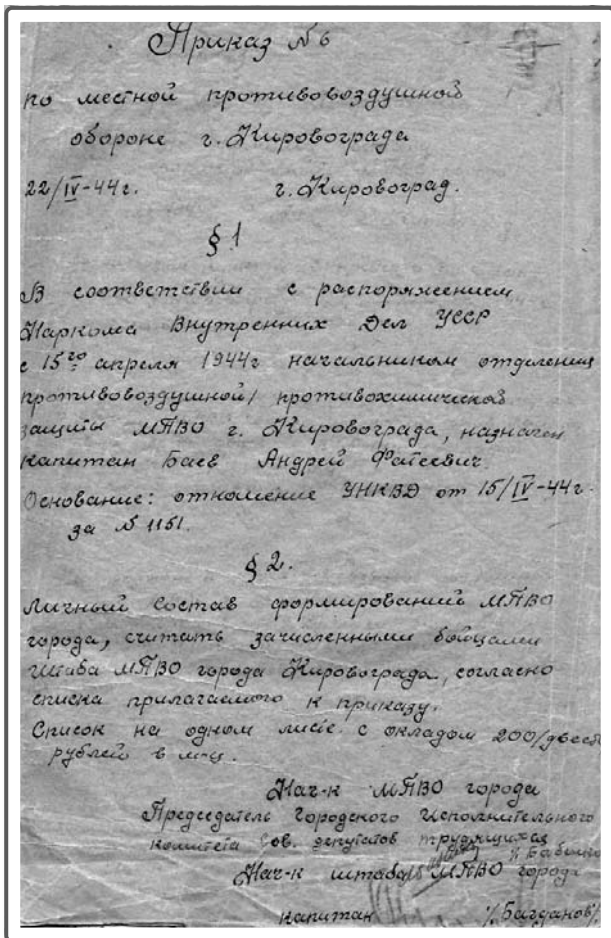 Приказ №6
по местной противовоздушной
обороне г. Кировограда
22/IV-44г. г. Кировоград.
§ 1
В соответствии с распоряжением
Наркома Внутренних Дел УССР
с 15го апреля 1944г начальником отделения
противовоздушной / противохимической
защиты МПВО г. Кировограда, назначен
капитан Баев Андрей Фатеевич
Основание: отношение УНКВД от 15/IV-44г.
за № 1151.
§ 2.
Личный состав формирований МПВО
города, считать зачисленными бойцами
Штаба МПВО города Кировограда, согласно
списка прилагаемого к приказу.
Список на одном листе с окладом 200/двест
рублей в м-ц.
Нач-к МПВО города
Председатель Городского Исполнительного
комитета Сов. депутатов трудящихся
Нач-к штаба МПВО города
капитан /Багданов/